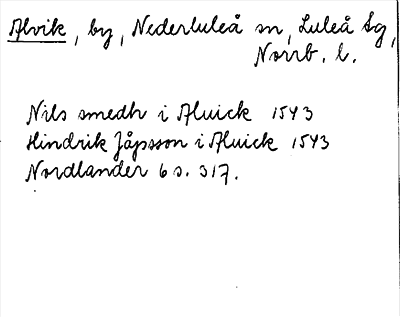 Alvik, by, Nederluleå sn, Luleå tg,
Norrb. l.
Nils smedh i Aluick 1543
Hindrik Jåpsson i Aluick 1543
Nordlander 6 s. 317.